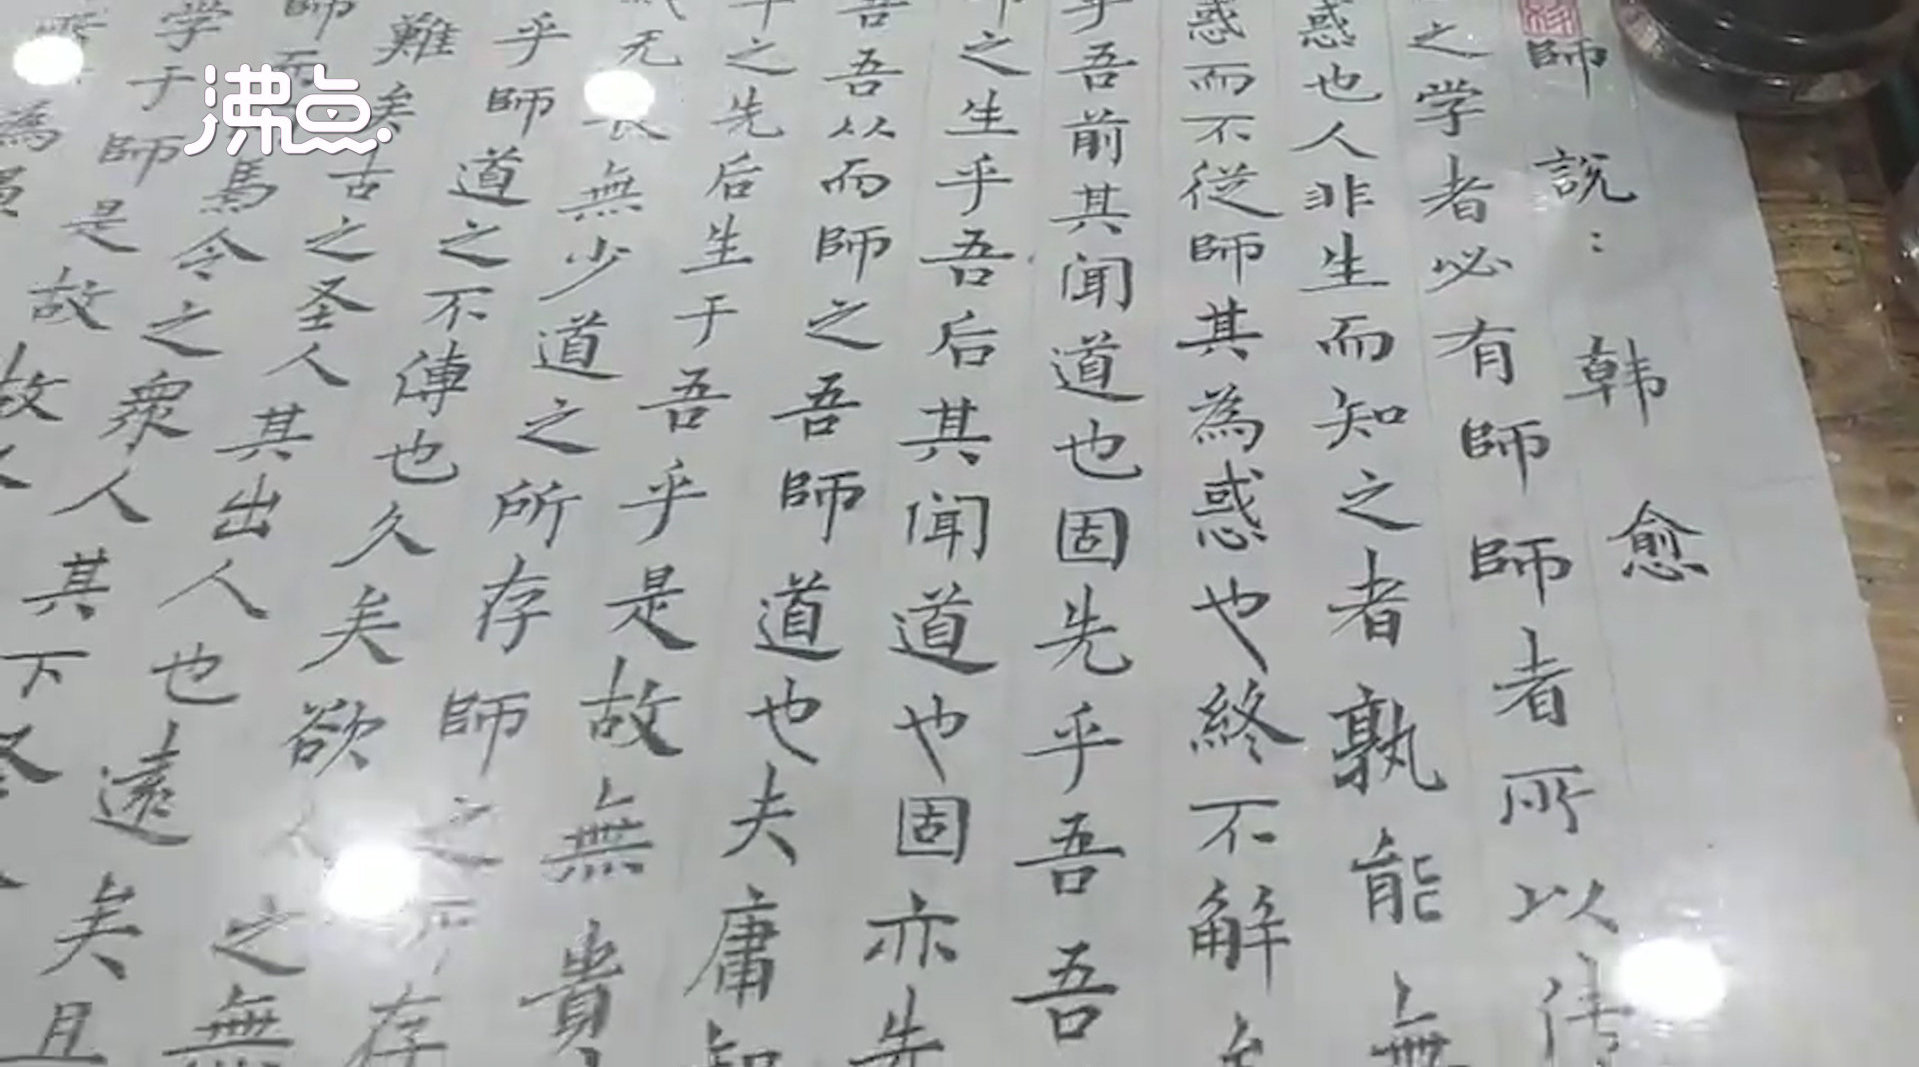 師說：韩愈
之学者必有師師者所以传
惑也人非生而知之者孰能無
惑而不從師其為惑也終不解
乎吾前其闻道也固先乎吾吾
之生乎吾后其闻道也固亦先
吾吾从而師之吾師道也夫庸知
之先后生于吾乎是故無貴
无長無少道之所存師之所存
乎師道之不傳也久矣欲人之無
難矣古之圣人其出人也遠矣且
師而馬今之衆人其下
学于師是故
為
沸点